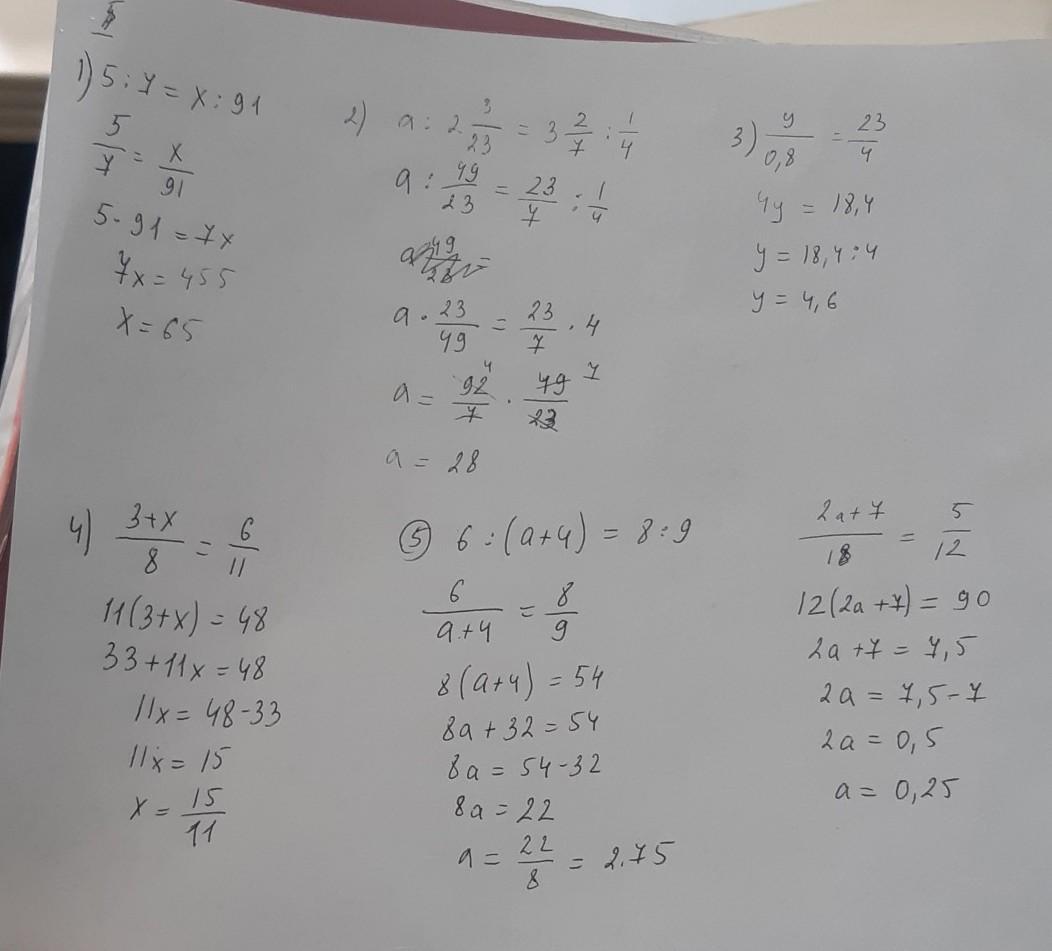 1) 5 : 7 = x : 91
5/7 = x/91
5 · 91 = 7x
7x = 455
x = 65
2) a : 2 3/23 = 3 2/7 : 1/4
a : 49/23 = 23/7 : 1/4
a · 23/49 = 23/7 · 4
a = 92/7 · 49/23
4 7
a = 28
3) y/0,8 = 23/4
4y = 18,4
y = 18,4 : 4
y = 4,6
4) 3+x/8 = 6/11
11(3+x) = 48
33+11x = 48
11x = 48-33
11x = 15
x = 15/11
5 6 : (a+4) = 8 : 9
6/a+4 = 8/9
8(a+4) = 54
8a + 32 = 54
8a = 54-32
8a = 22
a = 22/8 = 2.75
2a+7/18 = 5/12
12(2a+7) = 90
2a+7 = 7,5
2a = 7,5-7
2a = 0,5
a = 0,25